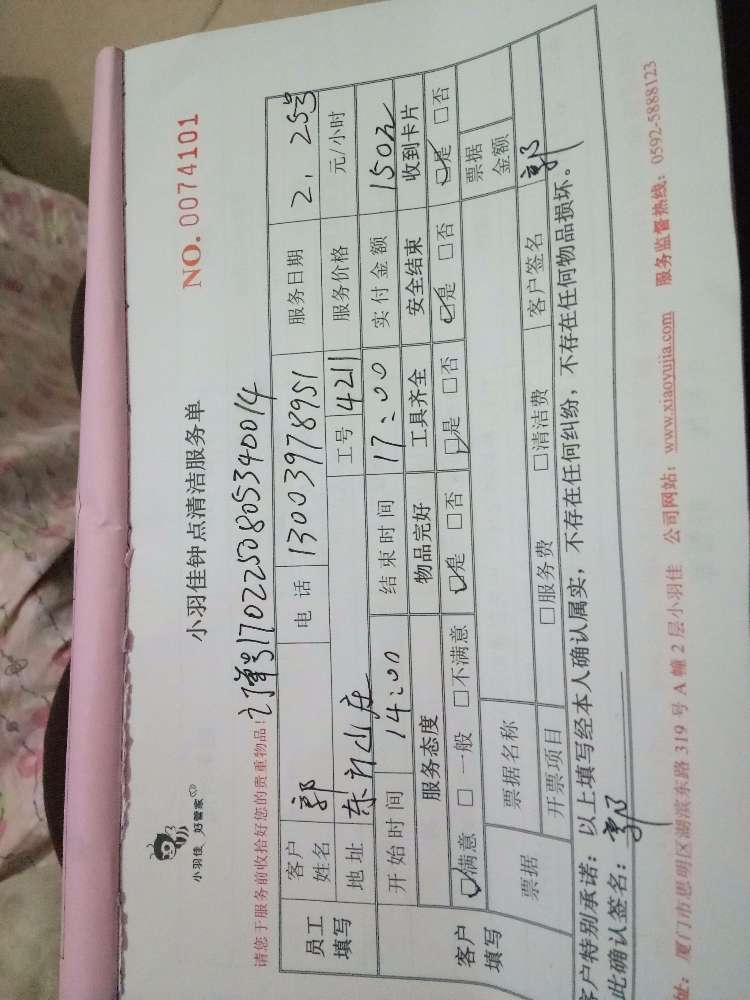 小羽佳 好管家
小羽佳钟点清洁服务单
NO. 0074101
请您于服务前收拾好您的贵重物品！订单号1702250805340014
员工填写
客户姓名 郭 电话 13003978951 服务日期 2，25号
地址 东方山庄 工号 4211 服务价格 元/小时
开始时间 14:00 结束时间 17:00 实付金额 150元
客户填写
服务态度 物品完好 工具齐全 安全结束 收到卡片
☑满意 □一般 □不满意 ☑是 □否 ☑是 □否 ☑是 □否 ☑是 □否
票据 票据名称 票据金额
开票项目 □服务费 □清洁费 客户签名 郭
客户特别承诺：以上填写经本人确认属实，不存在任何纠纷，不存在任何物品损坏。
此确认签名：郭
址：厦门市思明区湖滨东路319号A幢2层小羽佳 公司网站：www.xiaoyujia.com 服务监督热线：0592-5888123